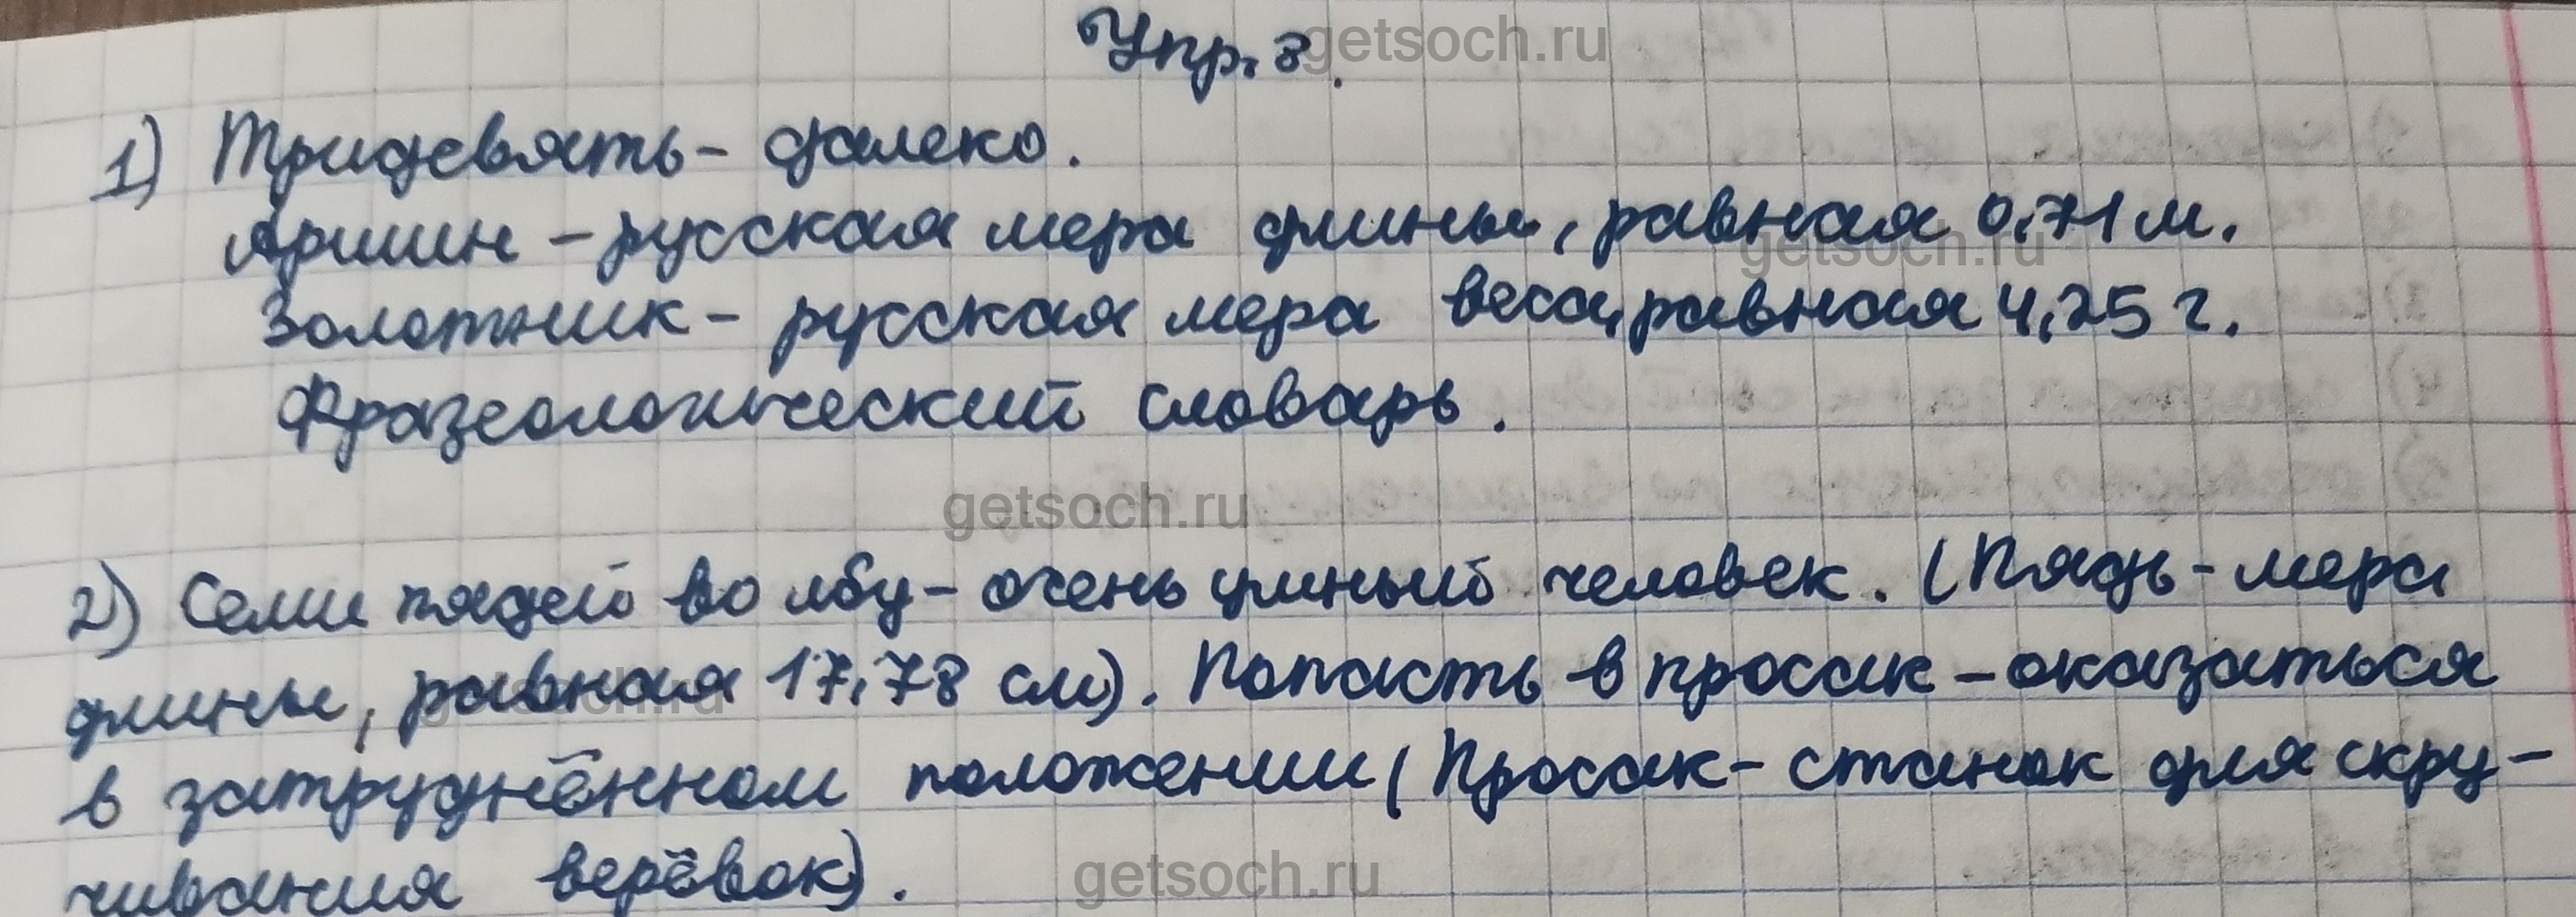 Упр. 8.
getsoch.ru
1) Тридевять - далеко.
Аршин - русская мера длины, равная 0,71 м.
getsoch.ru
Золотник - русская мера веса, равная 4,25 г.
Фразеологический словарь.
getsoch.ru
2) Семи пядей во лбу - очень умный человек. (Пядь - мера
длины, равная 17,78 см). Попасть в просак - оказаться
getsoch.ru
в затруднённом положении (Просак - станок для скру-
чивания верёвок).
getsoch.ru